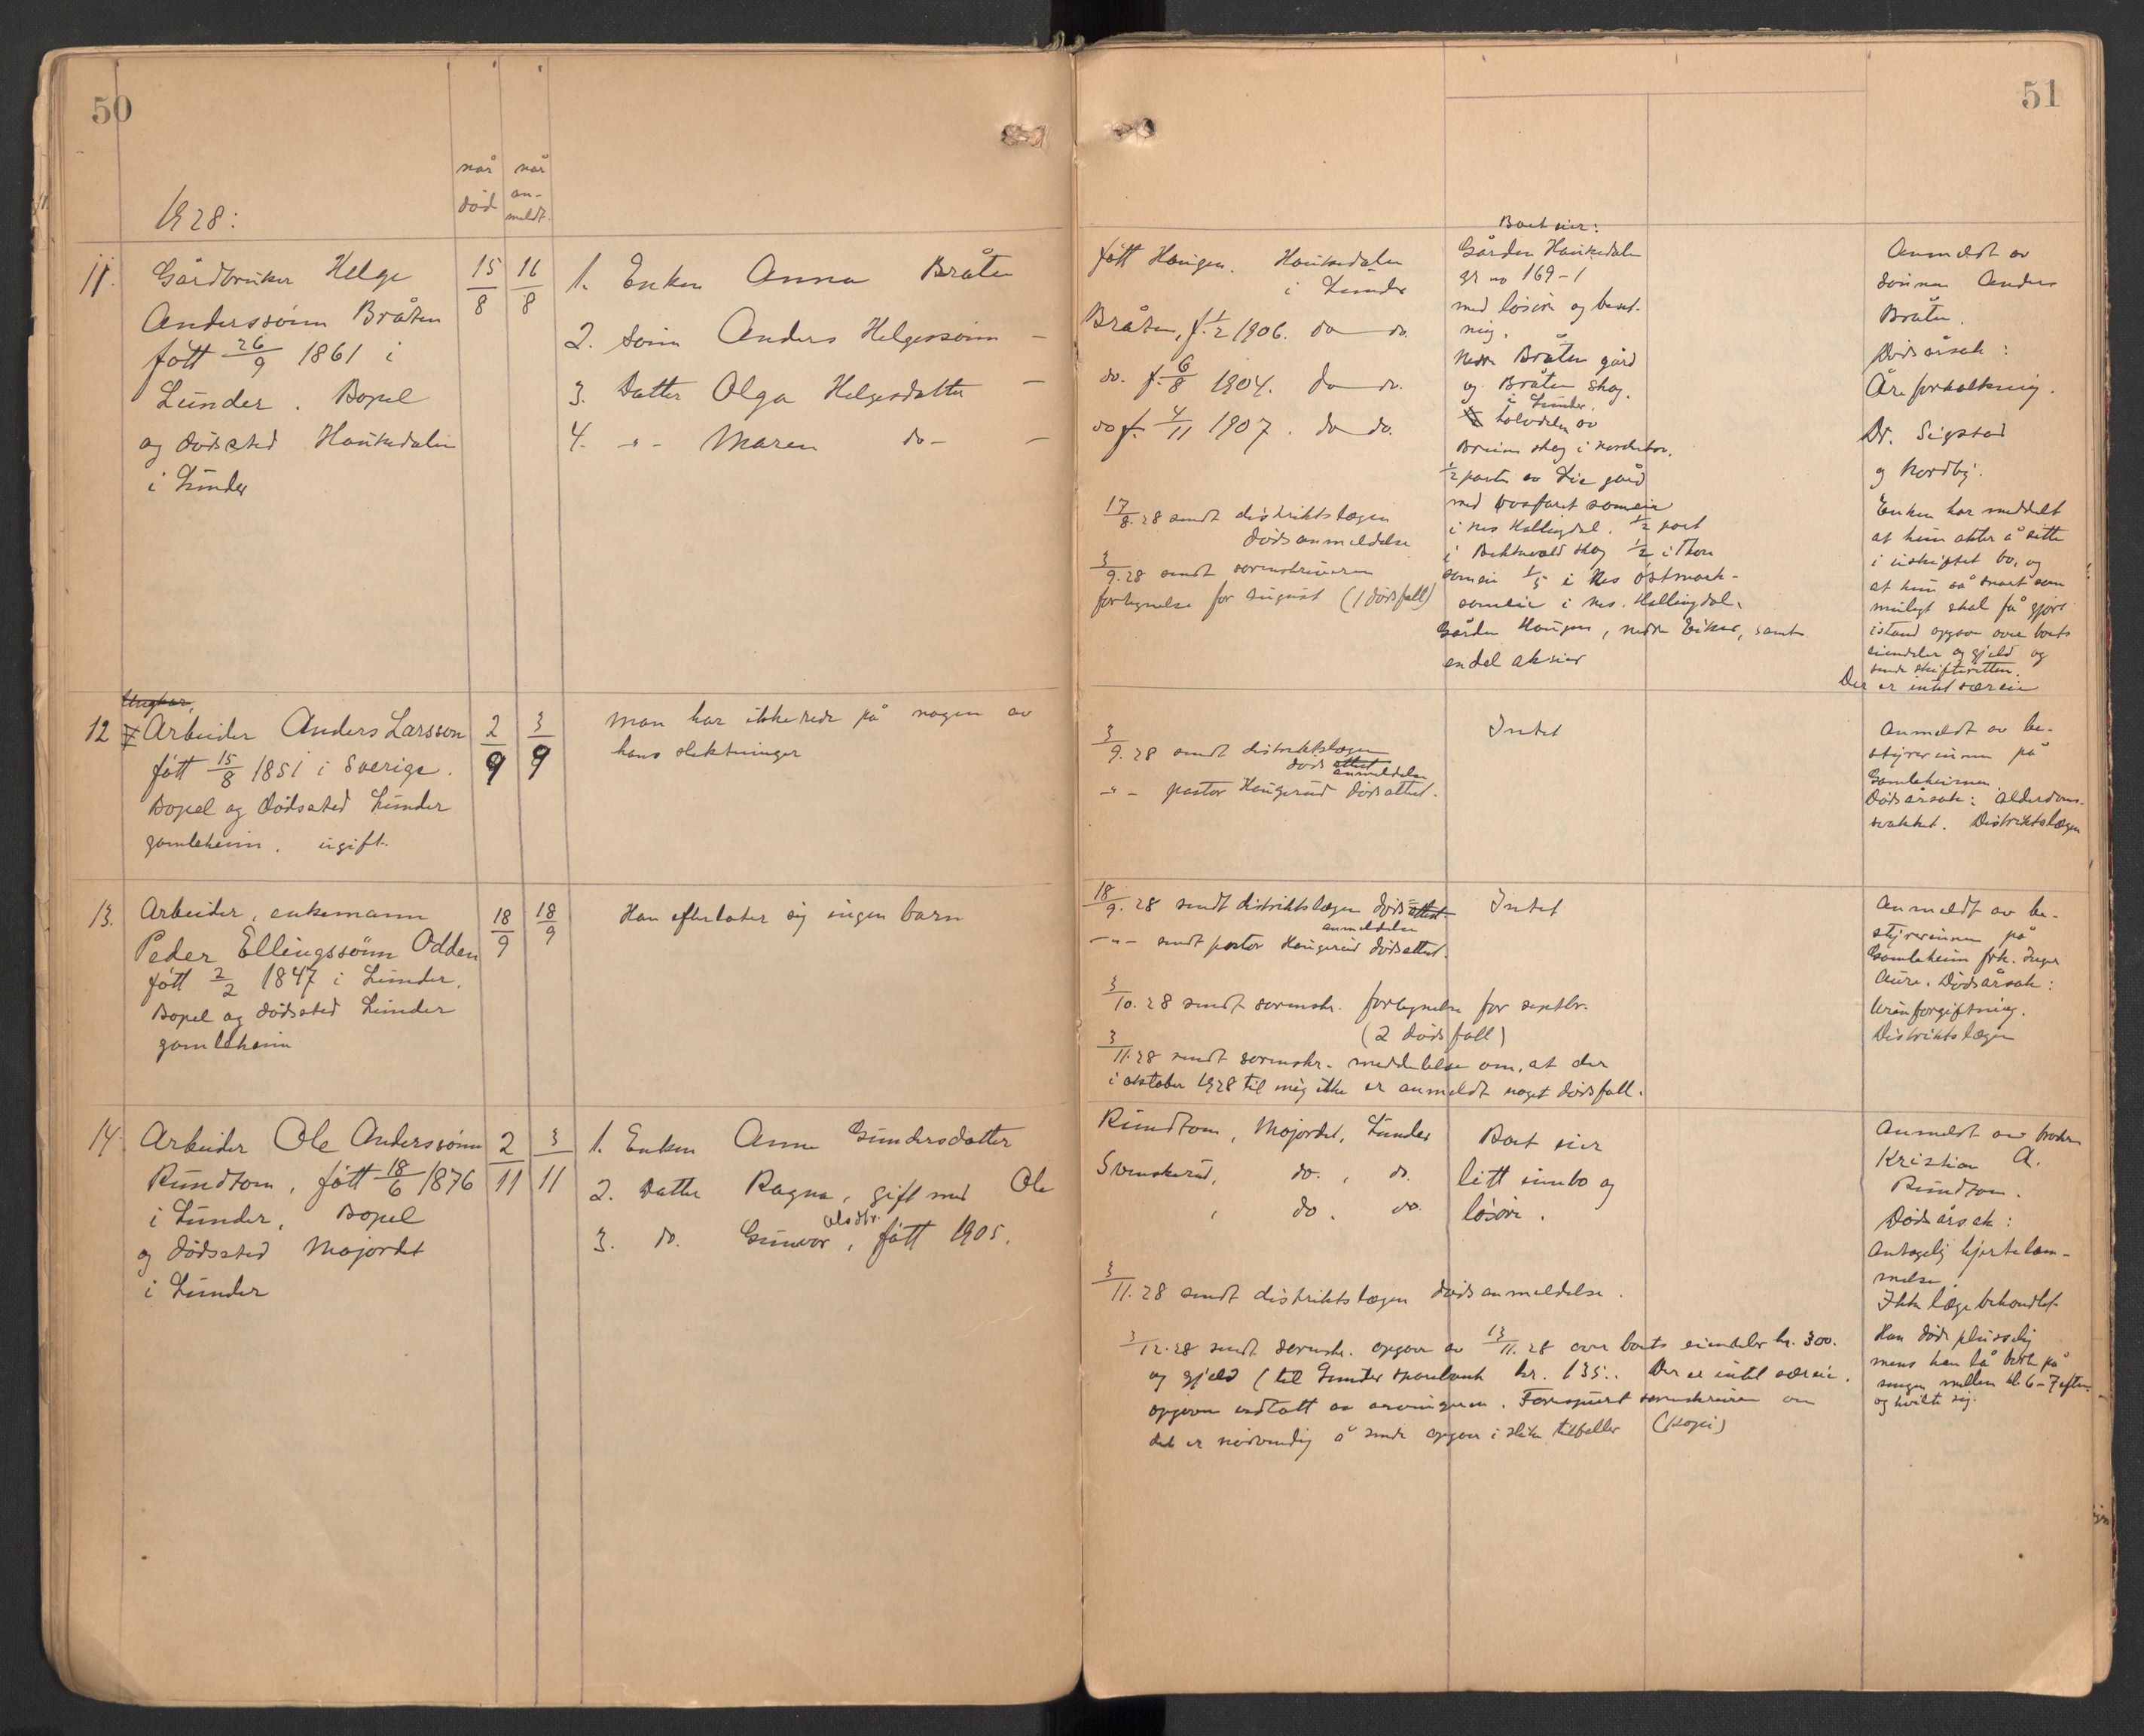 50
når død
når an-meldt.
1928:
11.
Gårdbruker Helge
Anderssønn Bråten
født 26/9 1861 i
Lunder. Bopel
og dødssted Haukedalen
i Lunder
15/8
16/8
1. Enken Anna Bråten
2. Sønn Anders Helgessønn —
3. Datter Olga Helgesdatter —
4. -"- Maren do- —
12
Ungkar,
Arbeider Anders Larsson
født 15/8 1851 i Sverige.
Bopel og dødssted Lunder
gamleheim. ugift.
2/9
3/9
Man har ikke rede på nogen av
hans slektninger
13.
Arbeider, enkemann
Peder Ellingssønn Odden
født 2/2 1847 i Lunder.
Bopel og dødssted Lunder
gamleheim
18/9
18/9
Han efterlater sig ingen barn
14.
Arbeider Ole Anderssønn
Rundtom, født 18/6 1876
i Lunder. Bopel
og dødssted Mojordet
i Lunder
2/11
3/11
1. Enken Anne Gundersdatter
2. Datter Ragna, gift med Ole
3. do. Gunvor Olsdtr., født 1905.
51
født Haugen. Haukedalen
i Lunder
Bråten, f. 1/2 1906. do do.
do. f. 6/8 1904. do do.
do f. 4/11 1907. do do.
17/8.28 sendt distriktslægen
dødsanmeldelse
3/9.28 sendt sorenskriveren
fortegnelse for august (1 dødsfall)
Boet eier:
Gården Haukedalen
gr no 169-1
med løsøre og beset-
ning.
Nedre Bråten gård
og Bråten skog.
i Lunder.
halvdelen av
skog i
1/2 parten av Lie gård
med sameie
i Nes Hallingdal. 1/2 part
i skog 1/2 i
sameie 1/5 i Nes østmark-
sameie i Nes. Hallingdal.
Gården Haugen, nedre Eiker, samt
endel aksier
Anmeldt av
sønnen Anders
Bråten.
Dødsårsak:
Åreforkalkning.
Dr. Sigstad
og Nordby.
Enken har meddelt
at hun akter å sitte
i uskiftet bo, og
at hun så snart som
muligt skal få gjort
istand opgave over boets
eiendeler og gjeld og
sende skifteretten.
Der er intet særeie
3/9.28 sendt distriktslægen
døds attest anmeldelse
-"- pastor Haugerud dødsattest.
Intet
Anmeldt av be-
styrerinnen på
Gamleheimen.
Dødsårsak: Alderdoms-
svakhet. Distriktslægen
18/9.28 sendt distriktslægen døds attest
anmeldelse
-"- sendt pastor Haugerud dødsattest.
3/10.28 sendt sorenskr. fortegnelse for septbr.
(2 dødsfall)
3/11.28 sendt sorenskr. meddelelse om, at der
i oktober 1928 til mig ikke er anmeldt noget dødsfall.
Intet
Anmeldt av be-
styrerinnen på
Gamleheim frk. Inger
Aure. Dødsårsak:
Urinforgiftning.
Distriktslægen
Rundtom, Mojordet, Lunder
Svenskerud, do., do.
, do. do.
Boet eier
litt innbo og
løsøre.
3/11.28 sendt distriktslægen dødsanmeldelse.
3/12.28 sendt sorenskr. opgave av 13/11.28 over boets eiendeler kr. 300.
og gjeld (til Lunder sparebank kr. 135.. Der er intet særeie.
opgaven vedtatt av arvingene. Forespurt sorenskriveren om
det er nødvendig å sende opgave i slike tilfeller (kopi)
Anmeldt av broderen
Kristian A.
Rundtom.
Dødsårsak:
Antagelig hjertelam-
melse.
Ikke lægebehandlet
Han døde plutselig
mens han lå borte på
sengen mellem kl. 6-7 eftm.
og hvilte sig.